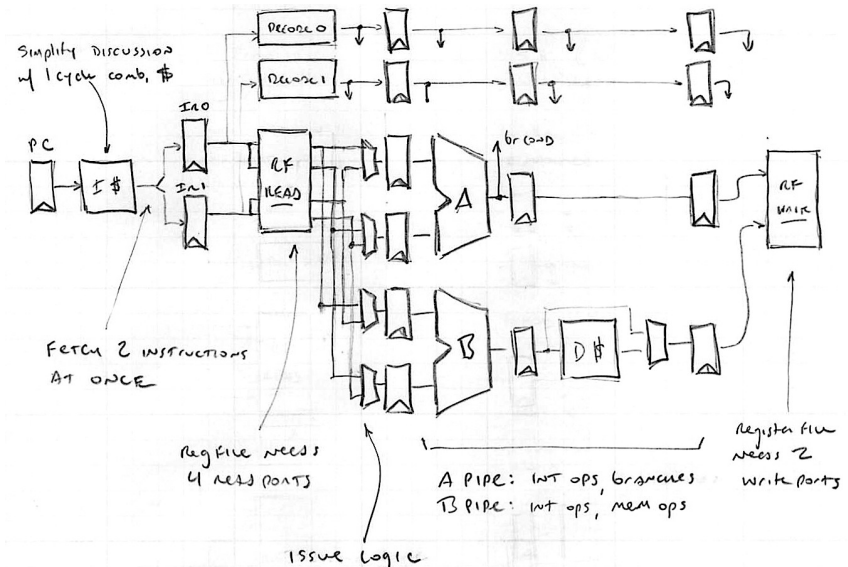 Simplify Discussion
w/ 1 cycle comb. $
Decode 0
Decode 1
PC
I $
IR0
IR1
RF
READ
A
br cond
RF
WRITE
B
D $
Fetch 2 instructions
at once
Regfile needs
4 read ports
Issue Logic
A pipe: int ops, branches
B pipe: int ops, mem ops
Register file
needs 2
write ports